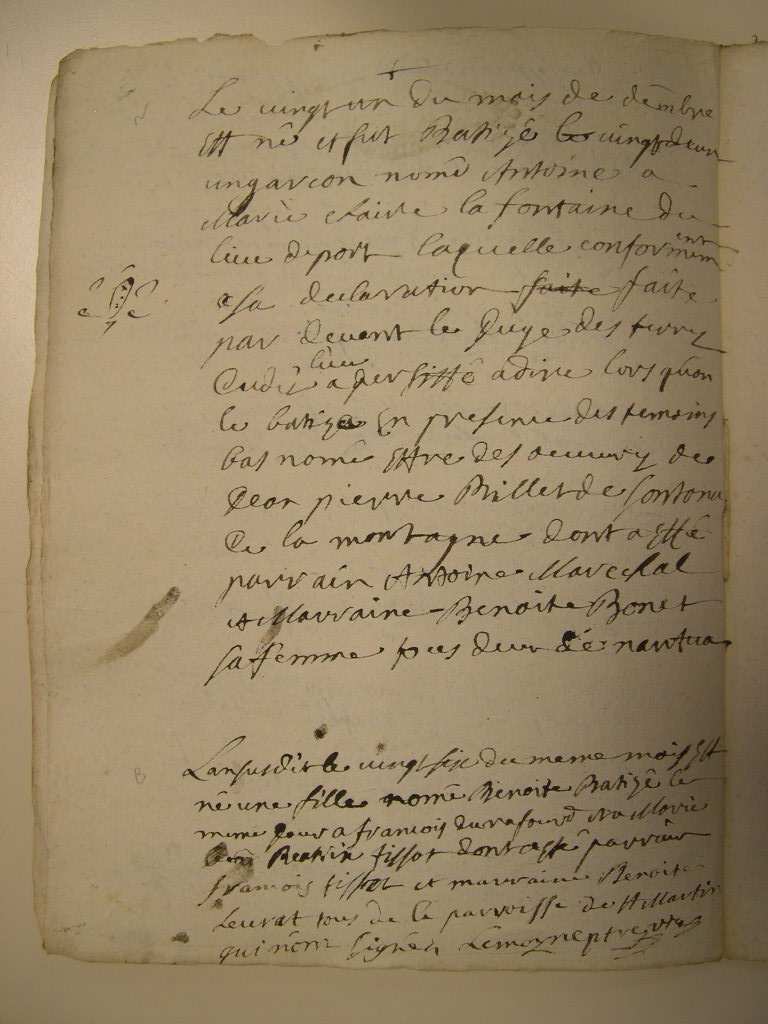 Le vingt un du mois de dêmbre
Est né et fut Batizé le vingt deux
un garcon nomé Antoine a
Marie Claire la fontaine du
lieu de port laquelle conformêment
a sa declaration faite faite
par devant le Juge des terres
dudit lieu a persisté a dire lors quon
le batize En presence des temoins
bas nomé Estre des oeuvres de
Jean pierre Billet de
de la montagne dont a Esté
parrain Antoine Marechal
et Marraine Benoite Bonet
sa femme tous deux de nantua
Lan susdit le vingt six du meme mois Est
né une fille nomé Benoite Batizé le
meme Jour a francois durafourd et a Marie
tissot dont a esté parrain
francois tissot et marraine Benoite
Leurat tous de la parroisse de st Martin
qui nont signés Lemoyne ptre